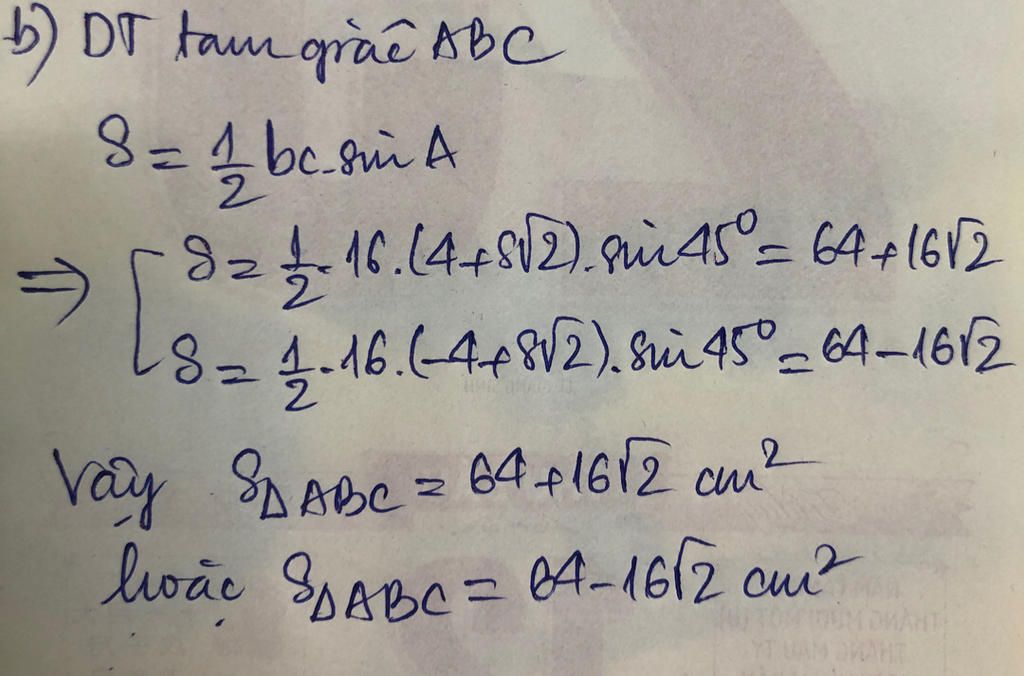 b) DT tam giác ABC
S = 1/2 bc.sin A
⇒ [ S = 1/2 . 16.(4+8√2).sin 45° = 64+16√2
S = 1/2 . 16.(-4+8√2).sin 45° = 64-16√2
Vậy S∆ABC = 64+16√2 cm²
hoặc S∆ABC = 64-16√2 cm²